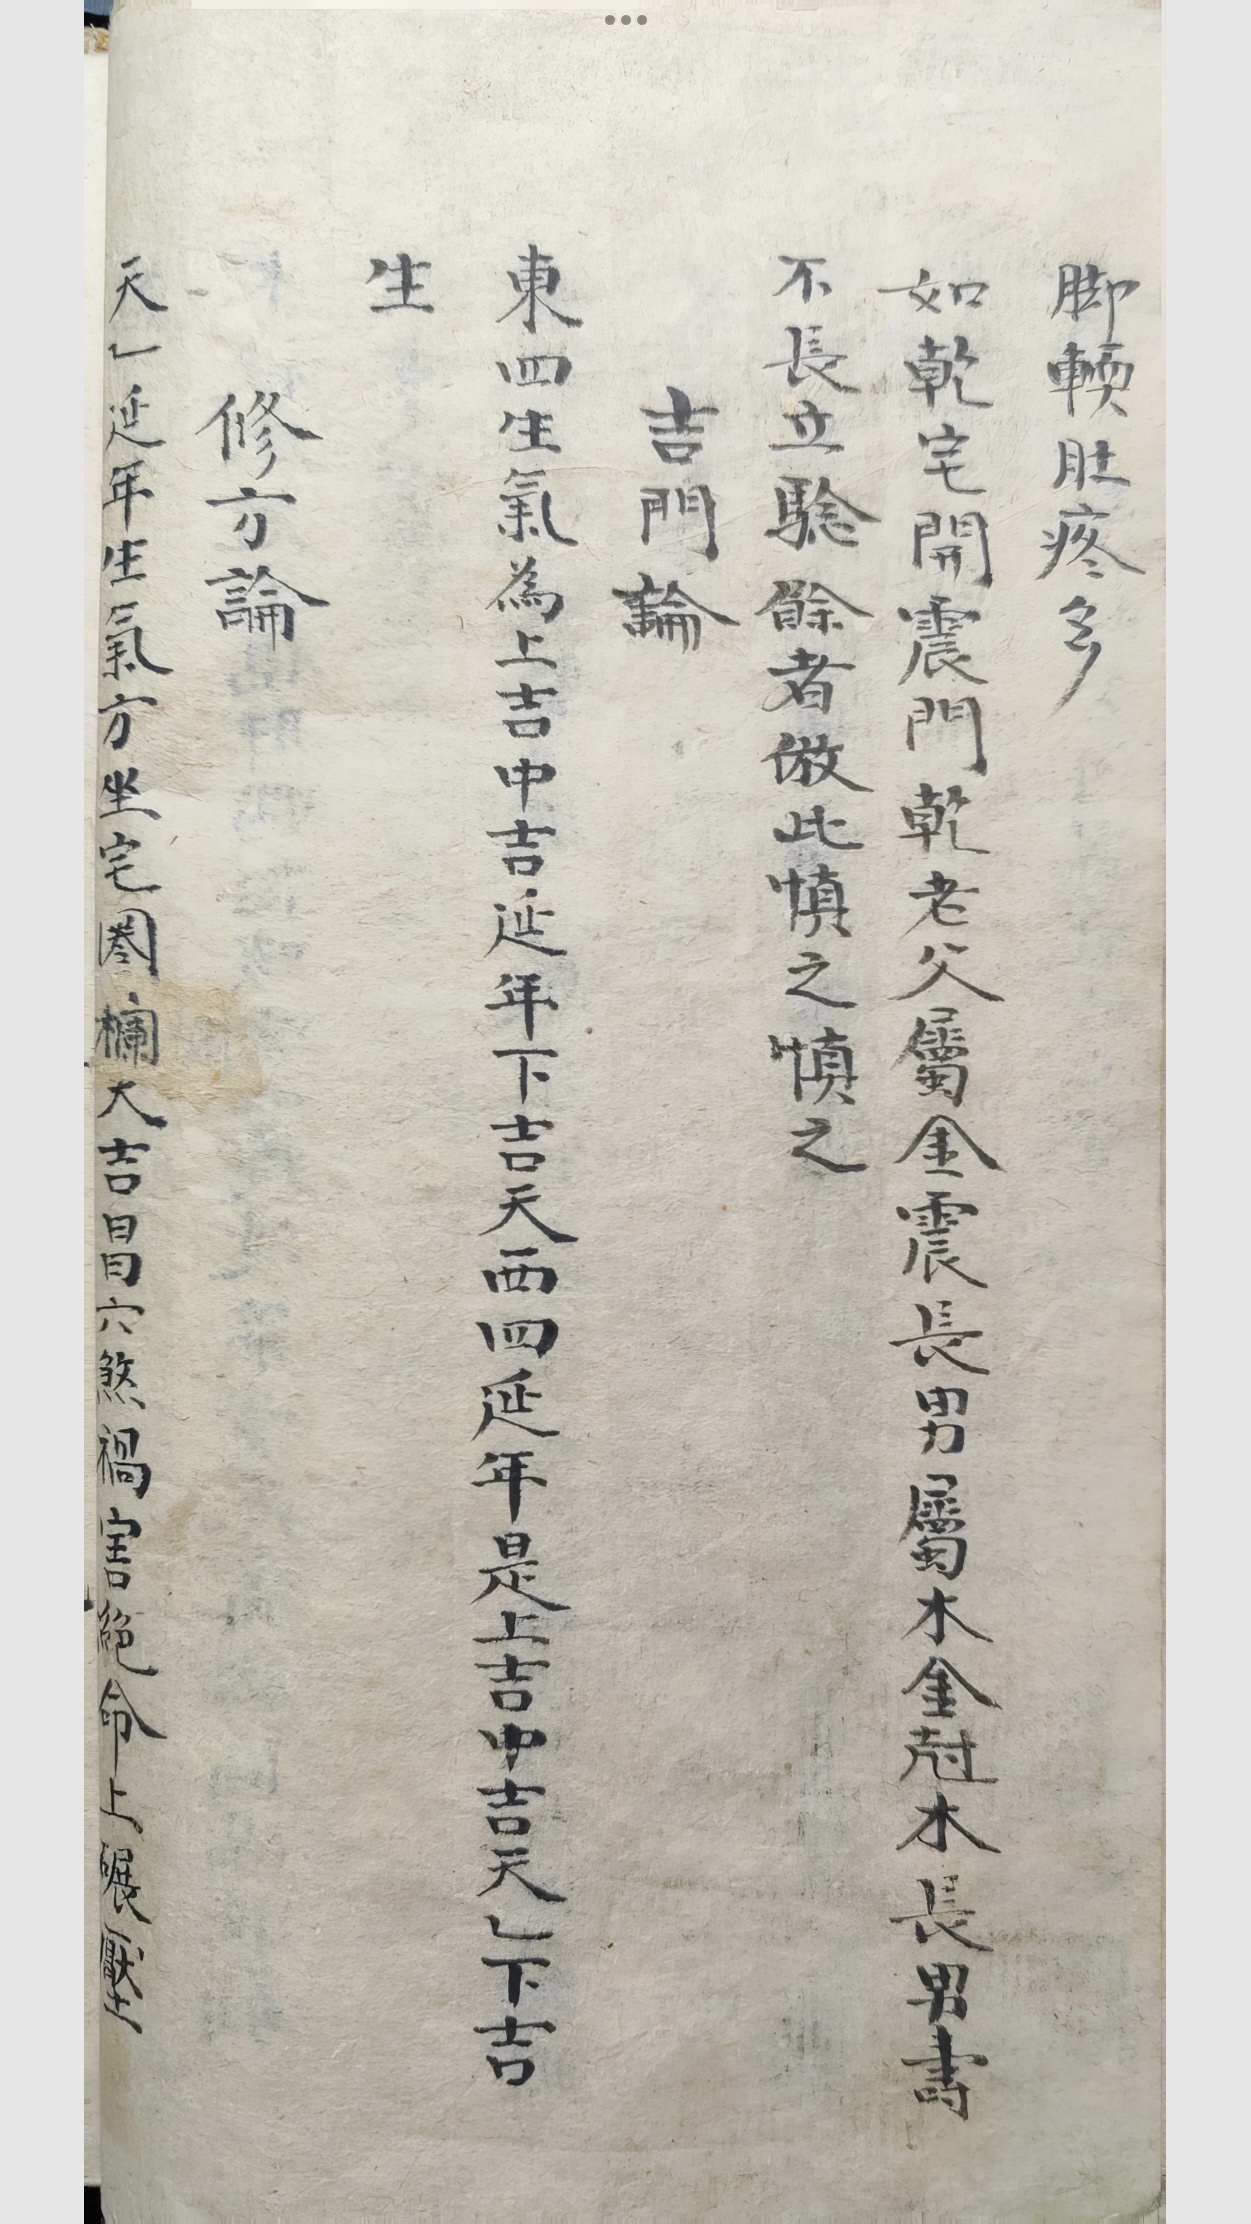 脚輭肚疼多
如乾宅開震門乾老父屬金震長男屬木金尅木長男壽
不長立騐餘者倣此慎之慎之
吉門論
東四生氣為上吉中吉延年下吉天西四延年是上吉中吉天乙下吉
生
修方論
天乙延年生氣方坐宅圈欄大吉昌六煞禍害絕命上碾壓